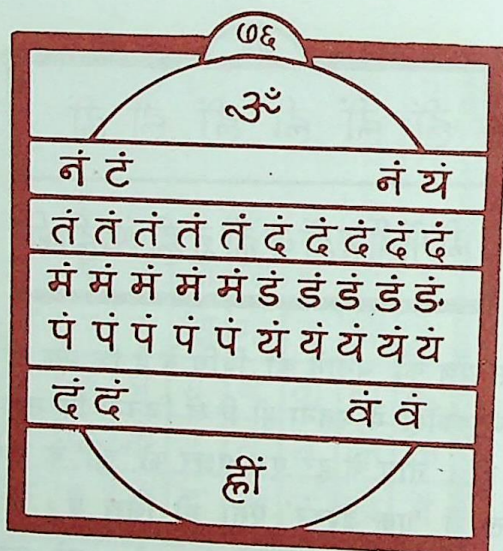 ७६
ॐ
नं टं नं यं
तं तं तं तं तं दं दं दं दं दं
मं मं मं मं मं डं डं डं डं डं
पं पं पं पं पं यं यं यं यं यं
दं दं वं वं
ह्रीं